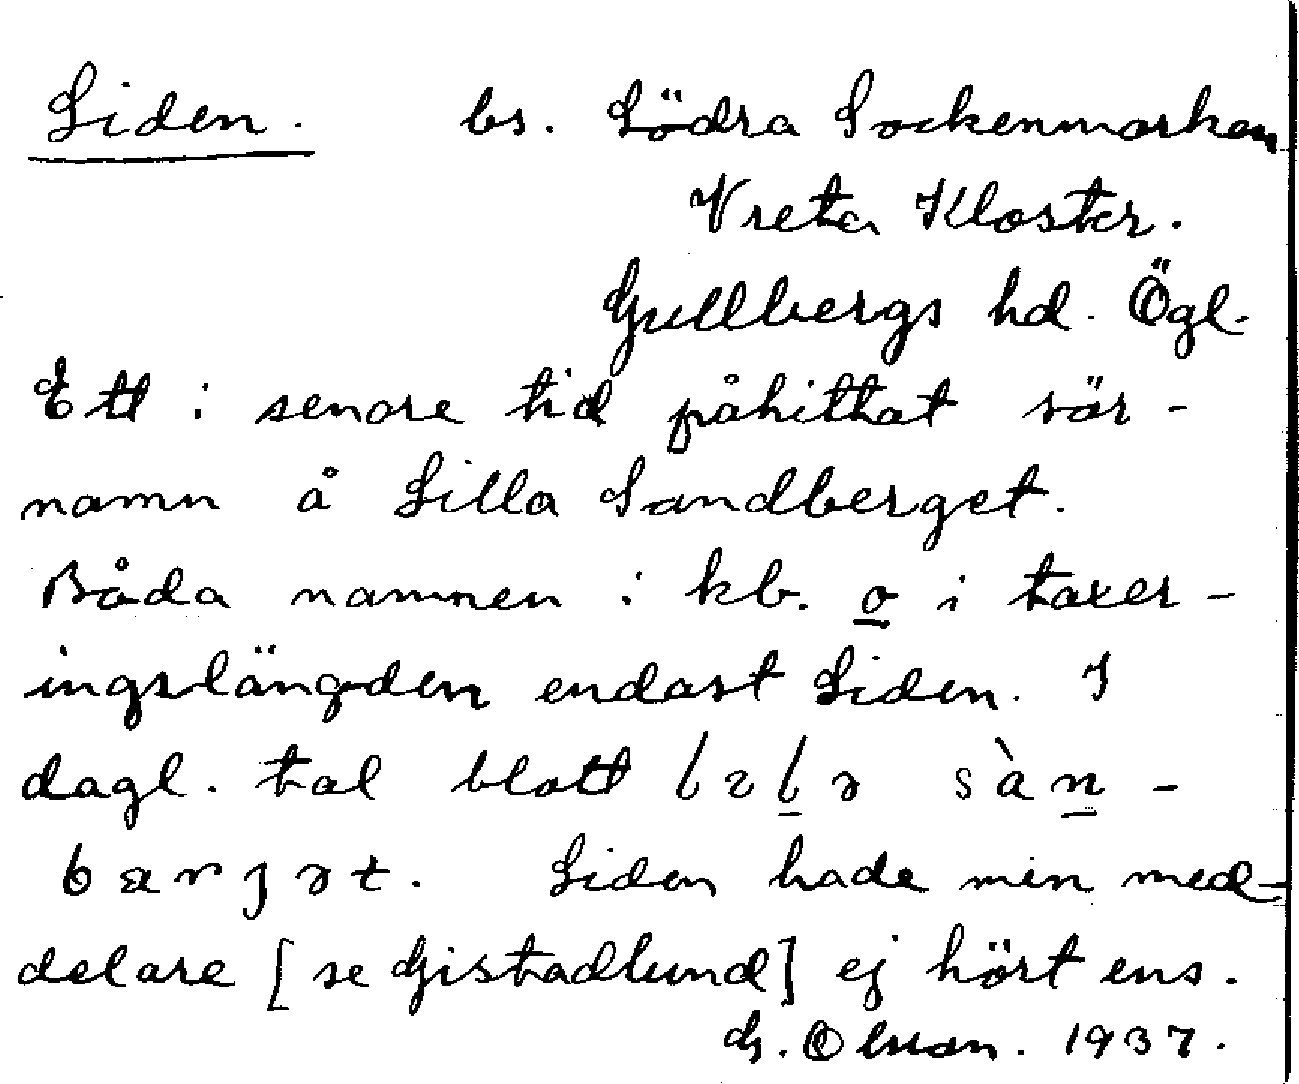 Liden. bs. Södra Sockenmarken
Vreta Kloster.
Gullbergs hd. Ögl.
Ett i senare tid påhittat sär-
namn å Lilla Sandberget.
Båda namnen i kb. o i taxer-
ingslängden endast Liden. I
dagl. tal blott lɩlə sàn-
bærjət. Liden hade min med-
delare [se Gistadlund] ej hört ens.
G. Olsson. 1937.